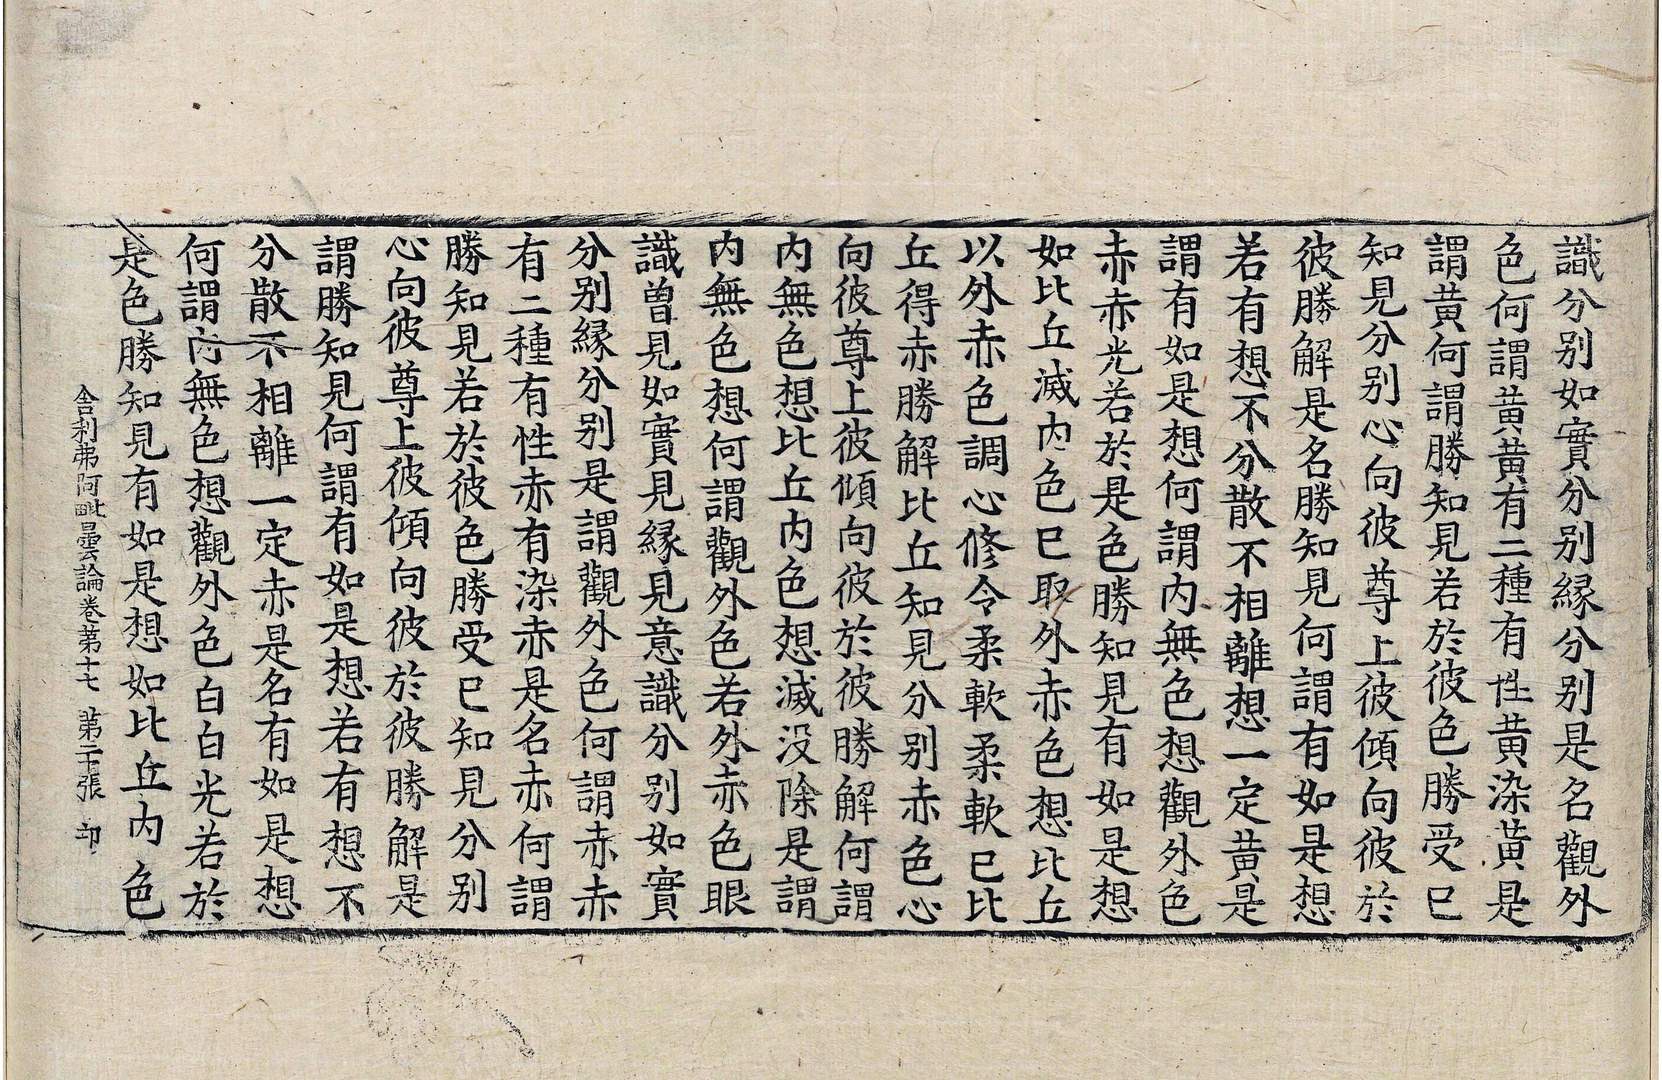 識分別如實分別縁分別是名觀外
色何謂黄黄有二種有性黄染黄是
謂黄何謂勝知見若於彼色勝受已
知見分別心向彼尊上彼傾向彼於
彼勝解是名勝知見何謂有如是想
若有想不分散不相離想一定黄是
謂有如是想何謂内無色想觀外色
赤赤光若於是色勝知見有如是想
如比丘滅内色已取外赤色想比丘
以外赤色調心修令柔軟柔軟已比
丘得赤勝解比丘知見分別赤色心
向彼尊上彼傾向彼於彼勝解何謂
内無色想比丘内色想滅没除是謂
内無色想何謂觀外色若外赤色眼
識曽見如實見縁見意識分別如實
分別縁分別是謂觀外色何謂赤赤
有二種有性赤有染赤是名赤何謂
勝知見若於彼色勝受已知見分別
心向彼尊上彼傾向彼於彼勝解是
謂勝知見何謂有如是想若有想不
分散不相離一定赤是名有如是想
何謂内無色想觀外色白白光若於
是色勝知見有如是想如比丘内色
舎利弗阿毗曇論卷第十七 第二十張 印